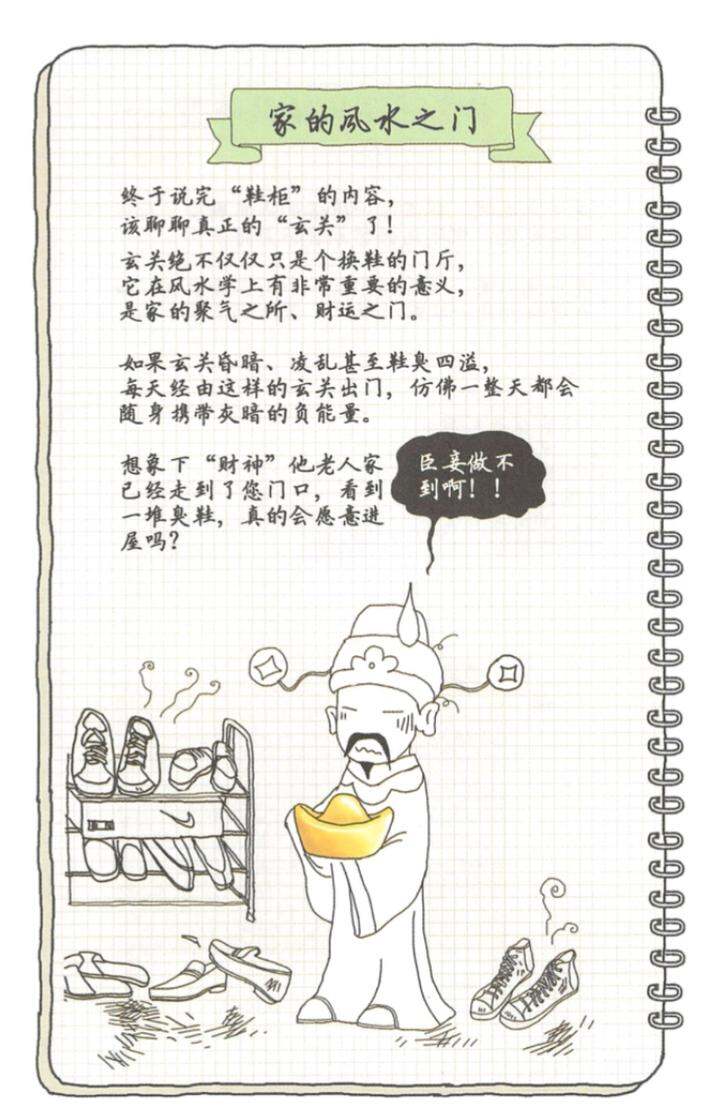 家的风水之门
终于说完“鞋柜”的内容，
该聊聊真正的“玄关”了！
玄关绝不仅仅只是个换鞋的门厅，
它在风水学上有非常重要的意义，
是家的聚气之所、财运之门。
如果玄关昏暗、凌乱甚至鞋臭四溢，
每天经由这样的玄关出门，仿佛一整天都会
随身携带灰暗的负能量。
想象下“财神”他老人家
已经走到了您门口，看到
一堆臭鞋，真的会愿意进
屋吗？
臣妾做不
到啊！！